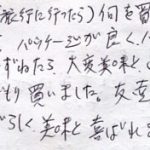 旅行に行ったら)何を買
パッケージが良く、
ずねたら、大変美味と
もり買いました。友達
らしく美味と喜ばれ